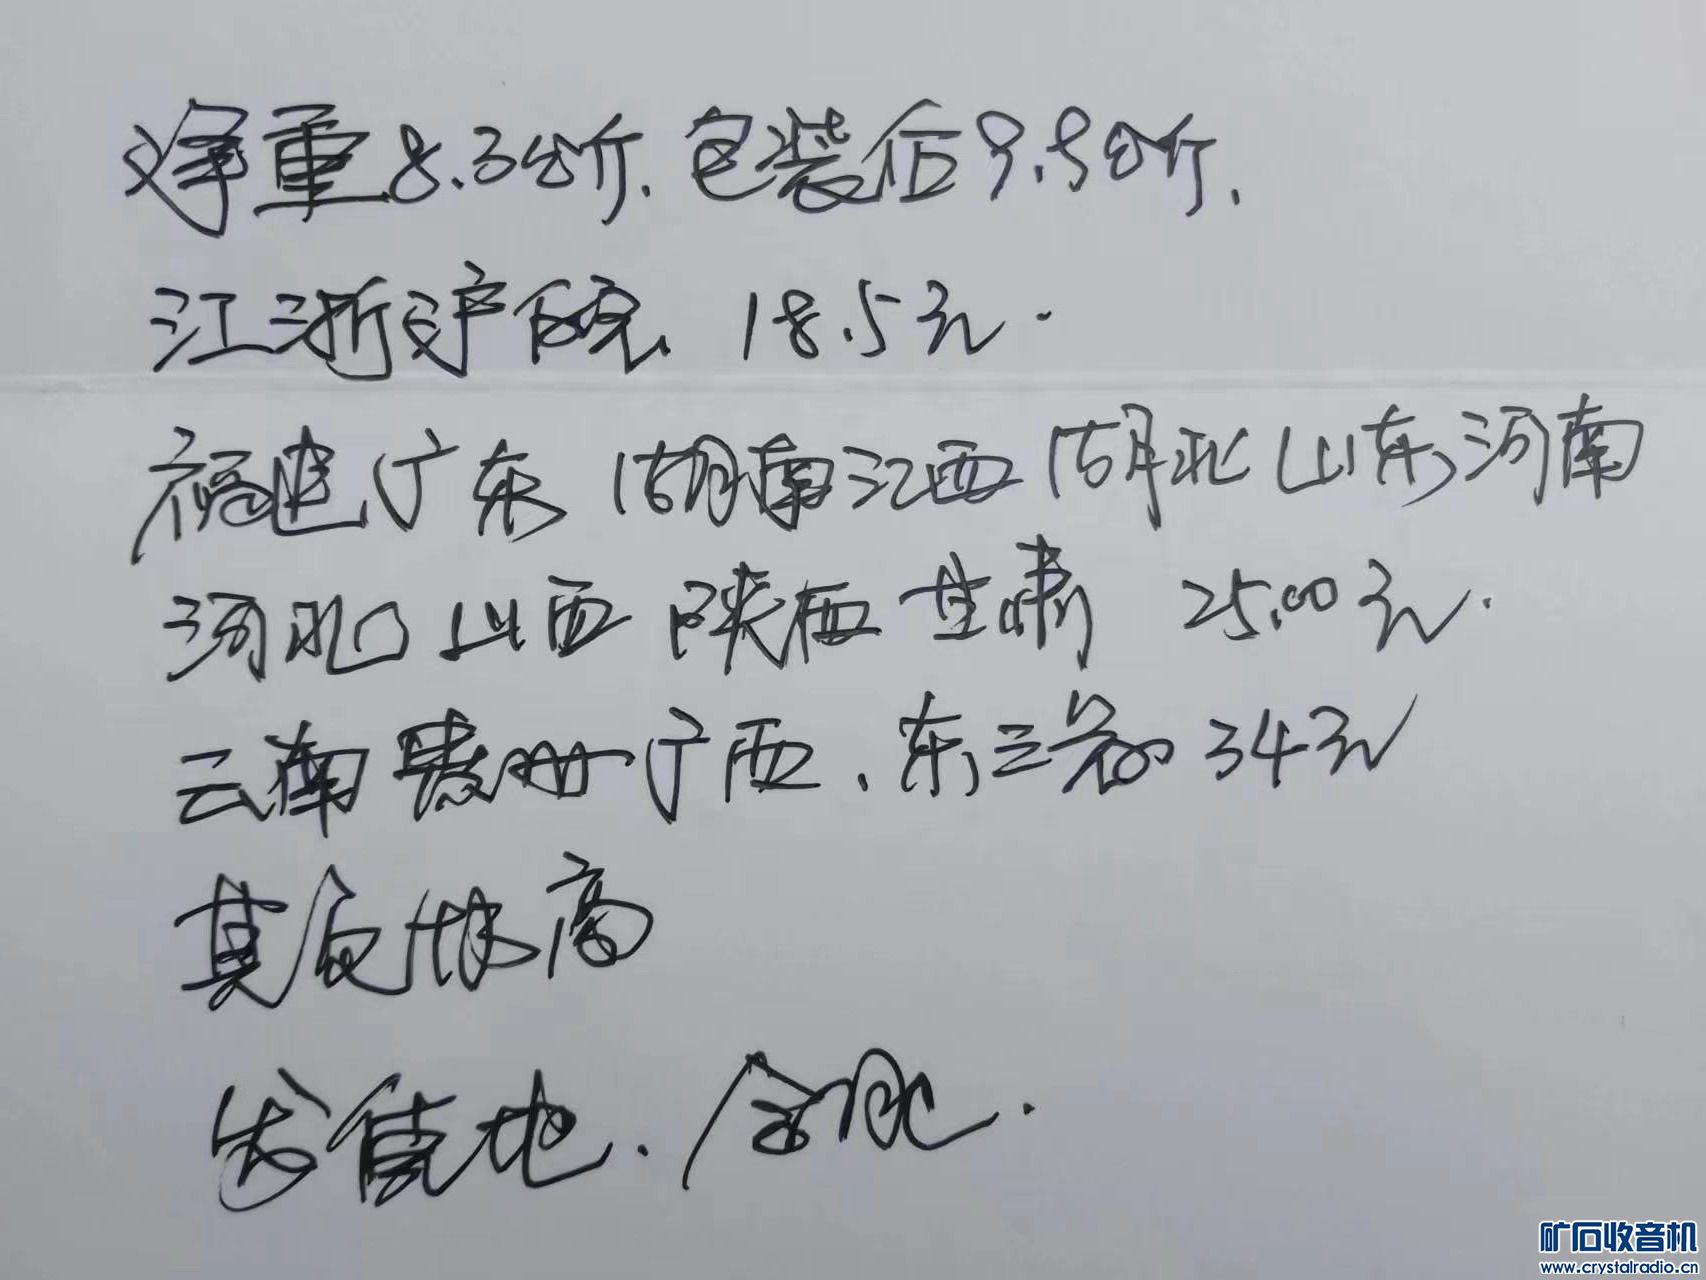 净重8.38斤.包装后9.98斤.
江浙沪皖. 18.5元.
福建广东 湖南江西 湖北山东河南
河北山西 陕西甘肃 25.00元.
云南贵州广西.东三省 34元
其它很高
发货地.合肥.
矿石收音机
www.crystalradio.cn